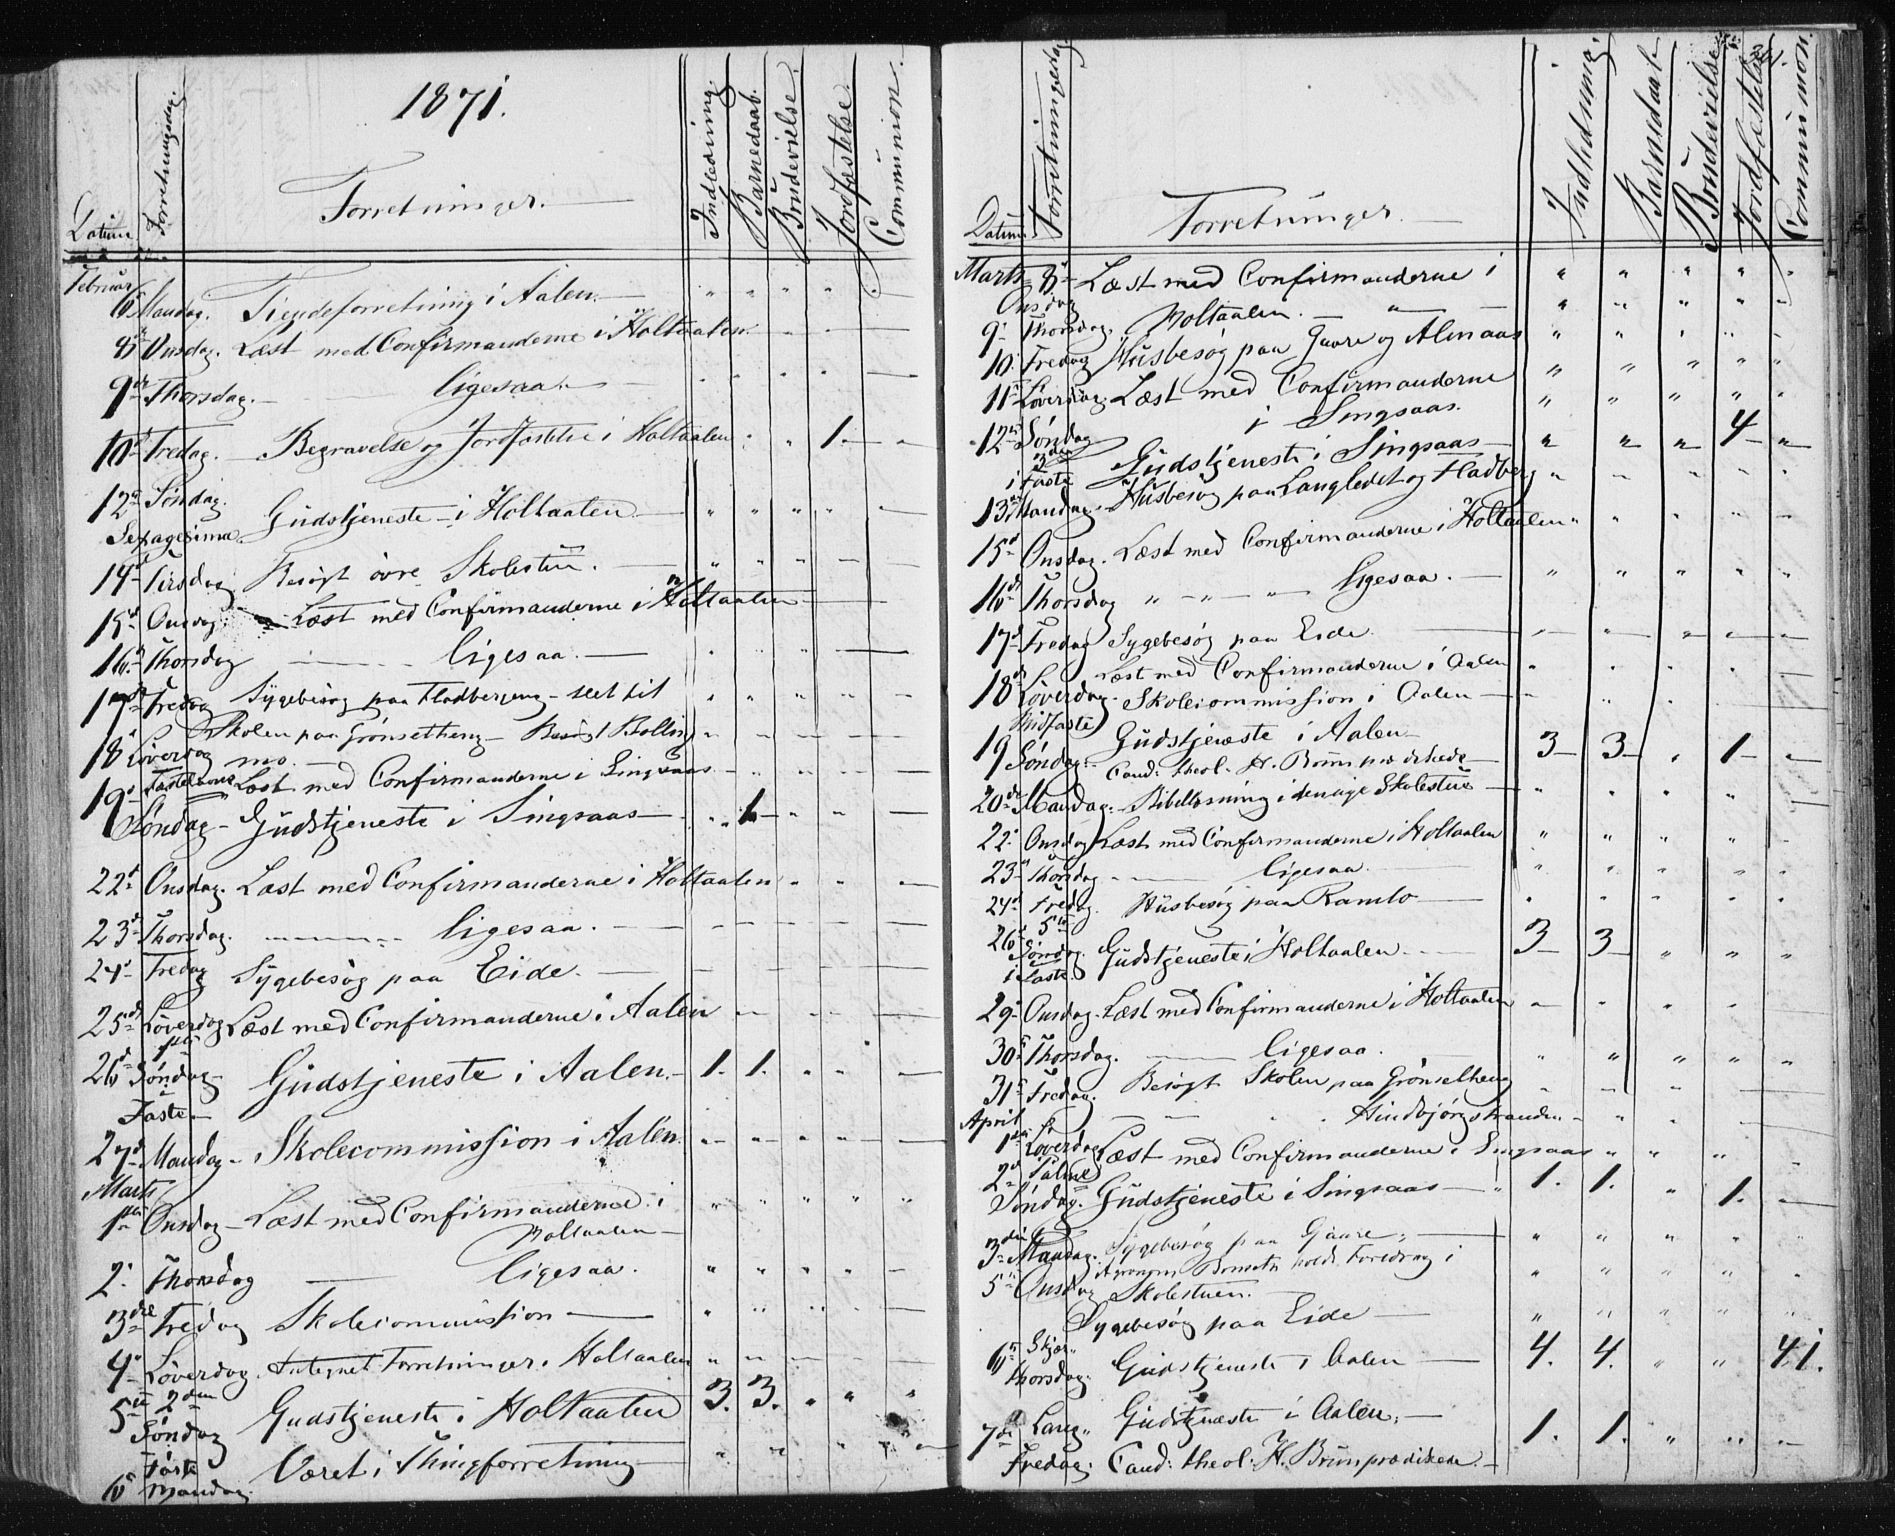 1871.
Datum Forretningsdag. Forretninger. Indledning. Barnedaab. Brudevielse. Jordfæstelse. Communion.
Februar
6 Mandag. Tiendeforretning i Aalen. " " " "
8 Onsdag. Læst med Confirmanderne i Holtaalen.
9 Thorsdag. ligesaa.
10 Fredag. Begravelse og Jordfæstelse i Holtaalen 1.
12 Søndag. Gudstjeneste i Holtaalen " " " "
Sexagesima.
14 Tirsdag Besögt övre Skolestue. " "
15 Onsdag. Læst med Confirmanderne i Holtaalen
16 Thorsdag ligesaa.
17 Fredag Sygebesög paa Fladbergeng - " " " "
Skolen paa Grönsetheng -
18 Löverdag mo.
Fastelavns Læst med Confirmanderne i Singsaas
19 Søndag - Gudstjeneste i Singsaas 1
22 Onsdag. Læst med Confirmanderne i Holtaalen
23 Thorsdag. ligesaa.
24 Fredag Sygebesög paa Eide.
25 Löverdag Læst med Confirmanderne i Aalen
26 1ste Söndag Gudstjeneste i Aalen. 1. 1.
i Faste
27 Mandag - Skolecommission i Aalen.
Marts
1ste Onsdag - Læst med Confirmanderne i " " " " "
Holtaalen
2. Thorsdag ligesaa. " " " "
3die Fredag Skolecommission "
4 Löverdag Forretninger i Holtaalen
5te 2den Gudstjeneste i Holtaalen 3. 3.
Söndag
Faste
6 Mandag. Været i Thingforretning
361.
Datum Forretningsdag Forretninger. Indledning. Barnedaab Brudevielse Jordfæstelse Communion.
Marts 8 Læst med Confirmanderne i " " " " "
Onsdag Holtaalen. " " " "
9 Thorsdag.
10. Fredag Husbesög paa Gaare og Almaas " " " "
11 Löverdag Læst med Confirmanderne " " " "
i Singsaas.
12 Søndag Gudstjeneste i Singsaas " " " 4 "
3die
i Faste
13 Mandag - Husbesög paa Langledet og Fladberg
15 Onsdag. Læst med Confirmanderne i Holtaalen
16 Thorsdag ligesaa. " " " " "
17 Fredag Sygebesög paa Eide
18 Löverdag. Læst med Confirmanderne i Aalen
Skolecommission i Aalen
Midfaste
19 Söndag. Gudstjeneste i Aalen 3 3 1
Cand: theol. H. Brun prædikede
20de Mandag. Bibellæsning i den nye Skolestue
22. Onsdag Læst med Confirmanderne i Holtaalen " " " "
23 Thorsdag ligesaa.
24 Fredag. Husbesög paa Ramlo
26 5te Söndag Gudstjeneste i Holtaalen 3 3 " " "
i Faste
29 Onsdag. Læst med Confirmanderne i Holtaalen
30 Thorsdag. ligesaa. " " " " "
31 Fredag. Besögt Skolen paa Grönsetheng
Hindbjörgstranden
April
1ste Löverdag Læst med Confirmanderne i Singsaas " " "
2 Palme Søndag. Gudstjeneste i Singsaas 1. 1. " 1.
3die Mandag. Sygebesög paa Gaare. " " " "
5 Onsdag holdt Foredrag i " " " "
Skolestuen.
Sygebesög paa Eide " " " "
6 Skjær Thorsdag. Gudstjeneste i Aalen 4. 4. " " 41.
7de Lang Gudstjeneste i Aalen. 1. 1. " "
Fredag. Cand: theol. H. Brun prædikede.